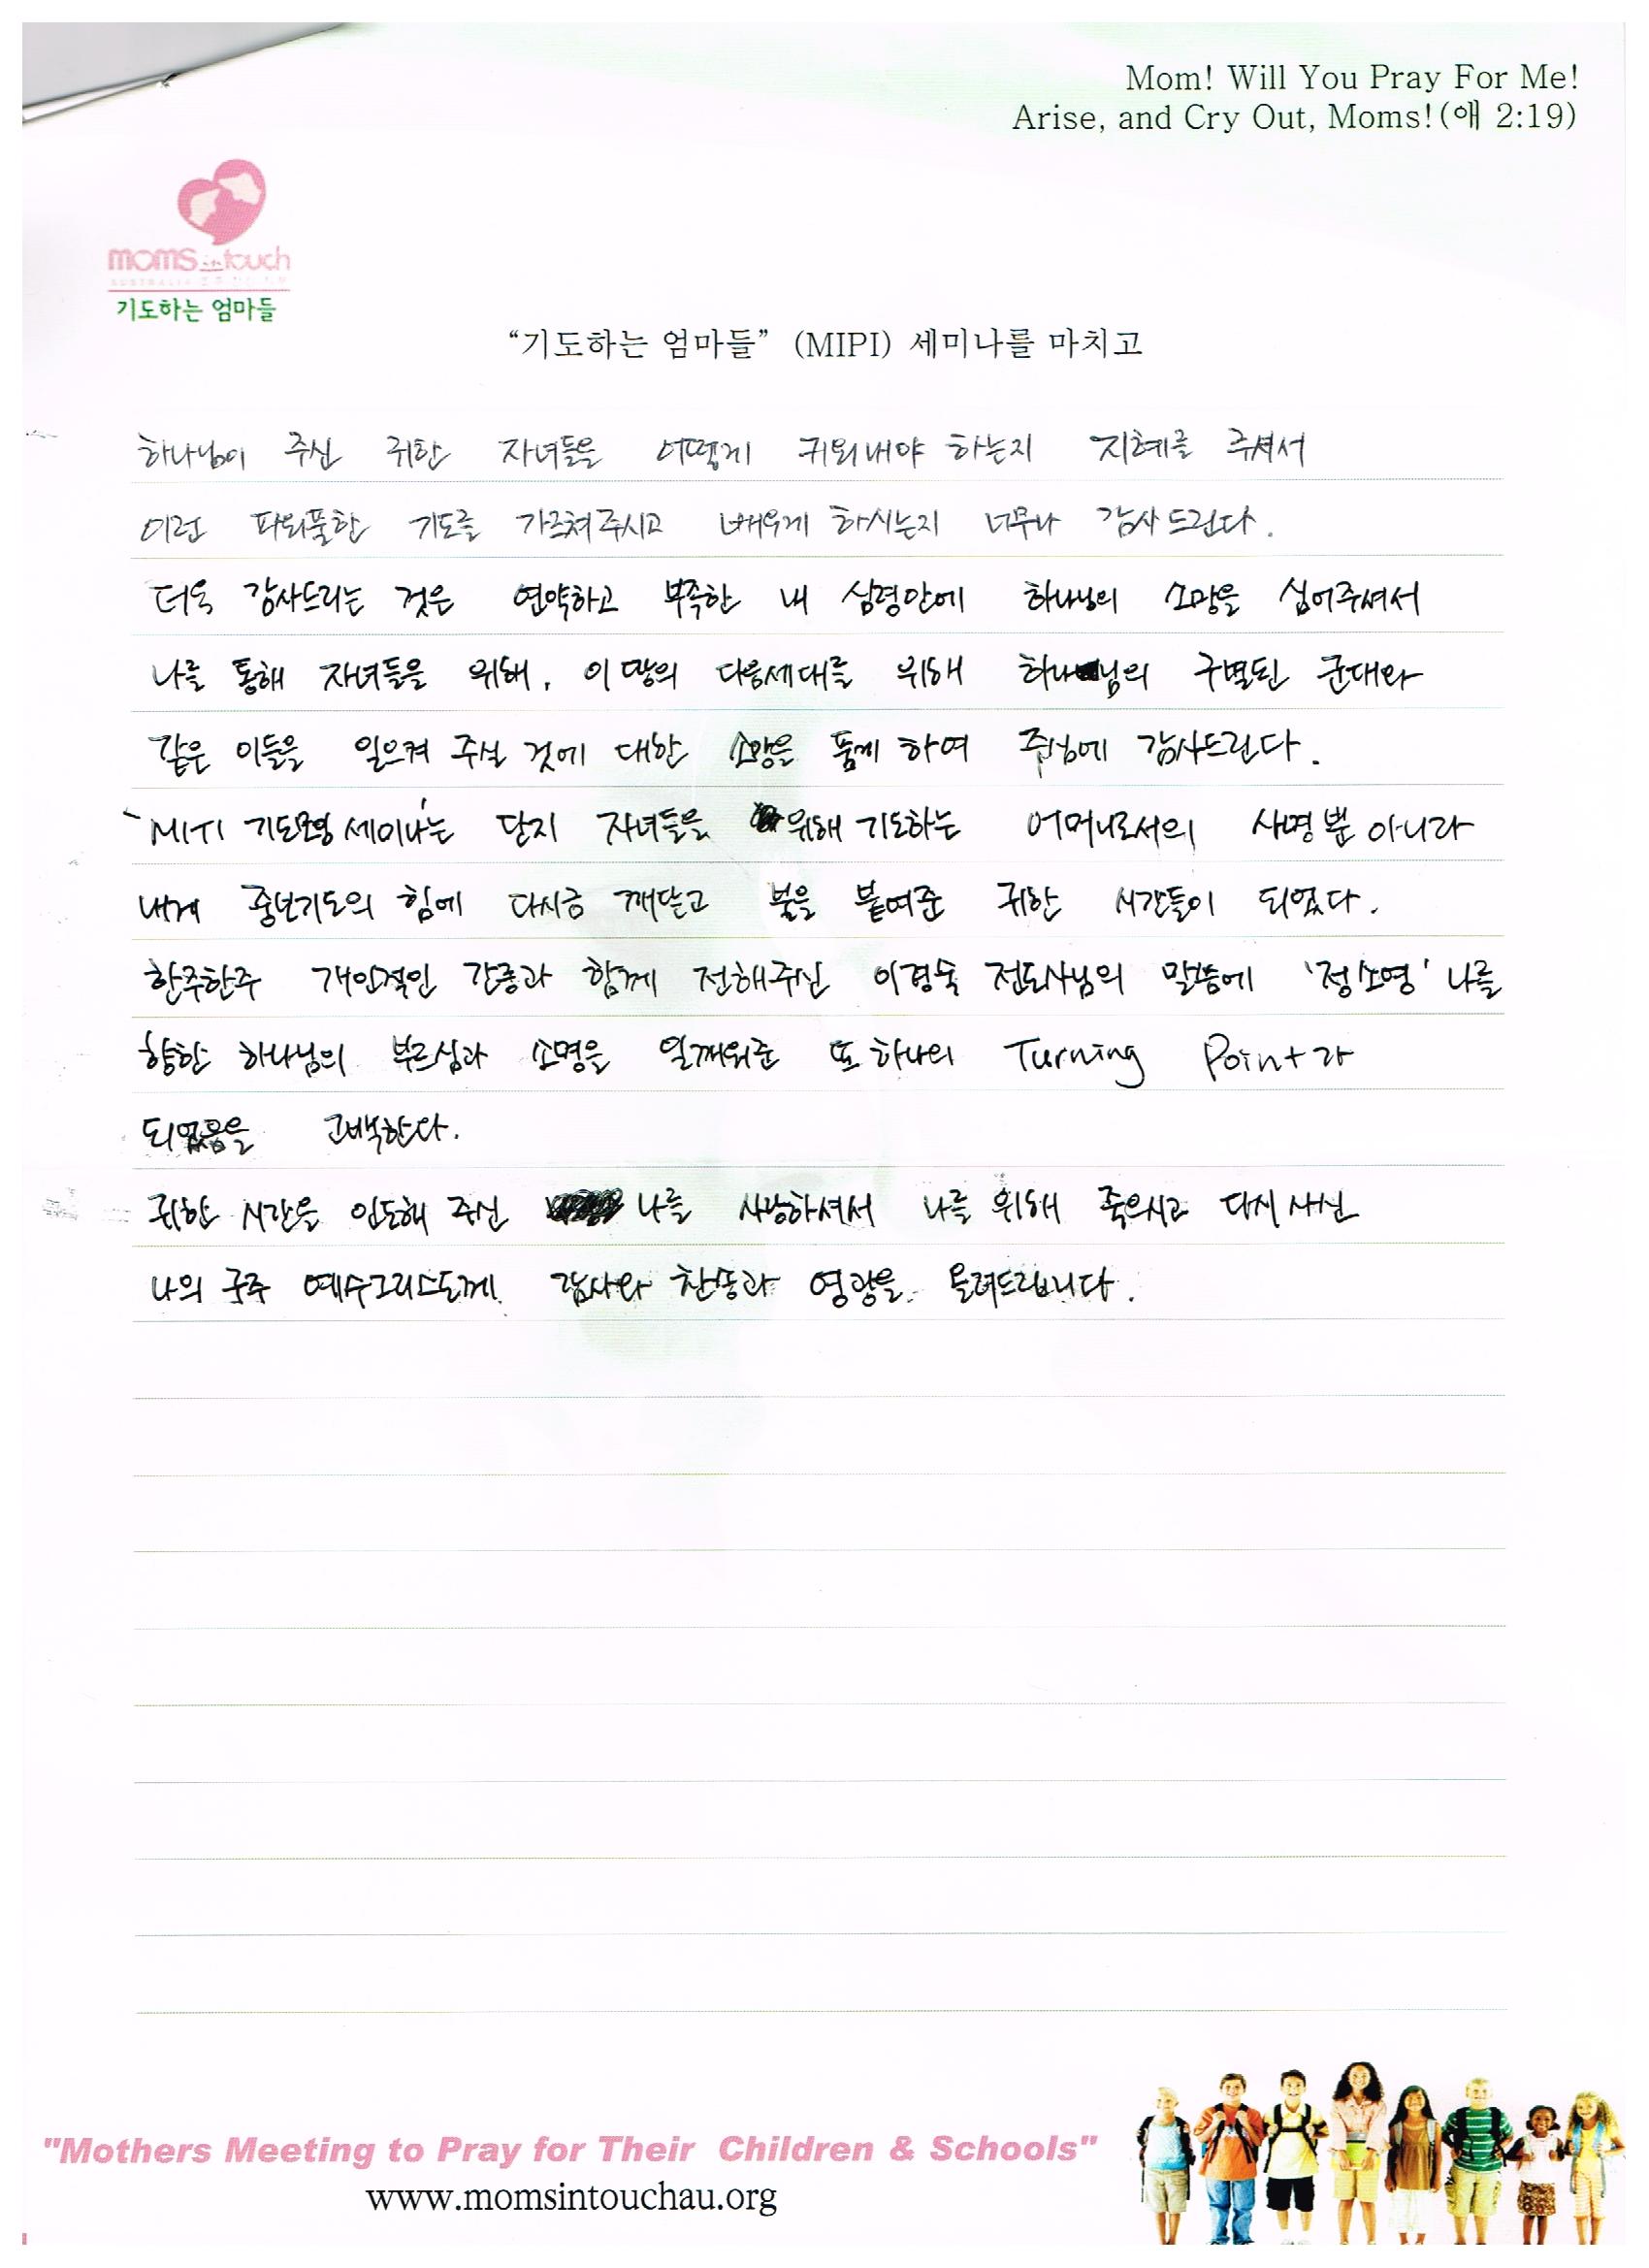 Mom! Will You Pray For Me!
Arise, and Cry Out, Moms!(애 2:19)
moms in touch
기도하는 엄마들
“기도하는 엄마들” (MIPI) 세미나를 마치고
하나님이 주신 귀한 자녀들을 어떻게 키워내야 하는지 지혜를 주셔서
이런 파워풀한 기도를 가르쳐주시고 배우게 하시는지 너무나 감사드린다.
더욱 감사드리는 것은 연약하고 부족한 내 심령안에 하나님의 소망을 심어주셔서
나를 통해 자녀들을 위해, 이 땅의 다음세대를 위해 하나님의 구별된 군대와
같은 이들을 일으켜 주실 것에 대한 소망을 품게 하여 주님에 감사드린다.
'MITI 기도모임 세미나'는 단지 자녀들을 위해 기도하는 어머니로서의 사명뿐 아니라
내게 중보기도의 힘에 다시금 깨닫고 불을 붙여준 귀한 시간들이 되었다.
한주한주 개인적인 간증과 함께 전해주신 이경숙 전도사님의 말씀에 '정소영' 나를
향한 하나님의 부르심과 소명을 일깨워준 또 하나의 Turning Point가
되었음을 고백한다.
귀한 시간을 인도해 주신 나를 사랑하셔서 나를 위해 죽으시고 다시 사신
나의 구주 예수그리스도께 감사와 찬송과 영광을 올려드립니다.
"Mothers Meeting to Pray for Their Children & Schools"
www.momsintouchau.org